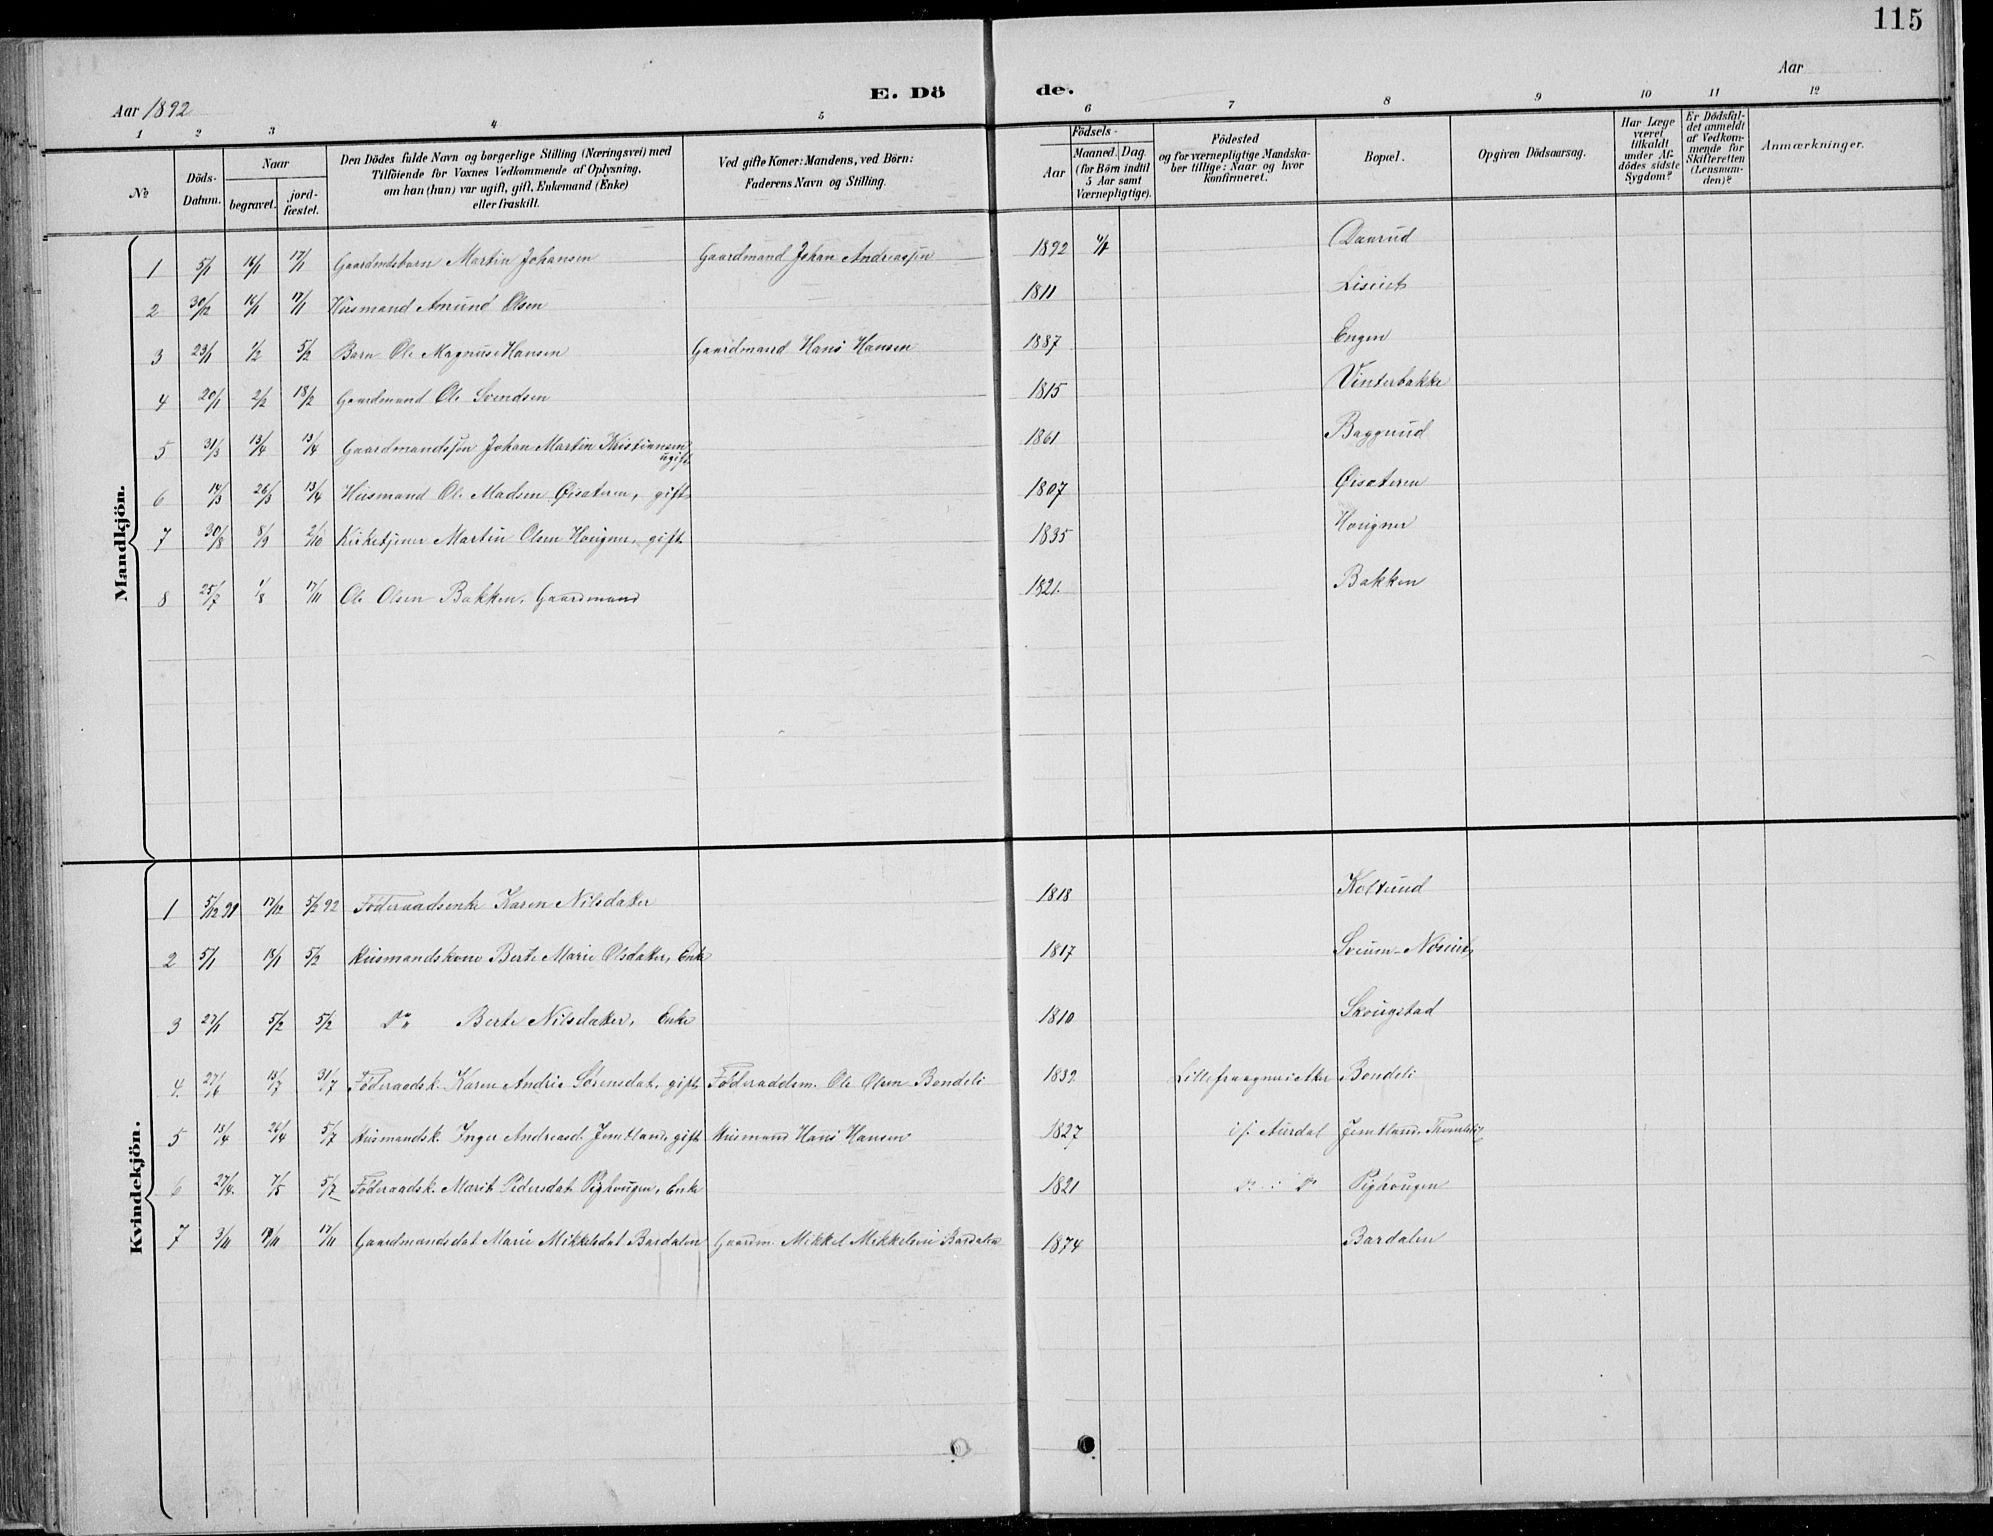 115
Aar 1892
E. Dö de.
Aar
1 2 3 4 5 6 7 8 9 10 11 12
No
Döds-Datum.
Naar
begravet.
jord-fæstet.
Den Dödes fulde Navn og borgerlige Stilling (Næringsvei) med
Tilföiende for Voxnes Vedkommende af Oplysning,
om han (hun) var ugift, gift, Enkemand (Enke)
eller fraskilt.
Ved gifte Koner: Mandens, ved Börn:
Faderens Navn og Stilling.
Födsels-
Aar
Maaned. Dag.
(for Börn indtil
5 Aar samt
Værnepligtige).
Födested
og for værnepligtige Mandska-
ber tillige: Naar og hvor
konfirmeret.
Bopæl.
Opgiven Dödsaarsag.
Har Læge
været
tilkaldt
under Af-
dödes sidste
Sygdom?
Er Dödsfal-
det anmeldt
af Vedkom-
mende for
Skifteretten
(Lensman-
den)?
Anmærkninger.
Mandkjön.
1 5/1 16/1 17/1 Gaardmdsbarn Martin Johansen Gaardmand Johan Andreassen 1892 Daarud
2 30/12 16/1 17/1 Husmand Amund Olsen 1811
3 23/1 1/2 5/2 Barn Ole Magnus Hansen Gaardmand Hans Hansen 1887 Engen
4 20/1 2/2 18/2 Gaardmand Ole Svendsen 1815 Vinterbakke
5 31/3 13/4 13/4 Gaardmandssøn Johan Martin Kristiansen 1861 Baggrud
ugift
6 14/3 26/3 13/4 Husmand Ole Madsen Øisæteren, gift 1807 Øisæteren
7 30/8 8/9 2/10 Kirketjener Martin Olsen Hougner, gift 1835 Hougner
8 25/7 1/8 17/11 Ole Olsen Bakken, Gaardmand 1821. Bakken
Kvindekjön.
1 5/12 91 17/12 5/2 92 Föderaadsenke Karen Nilsdatter 1818 Kolterud
2 5/1 18/1 5/2 Husmandskone Berte Marie Olsdatter, Enke 1817
3 27/1 5/2 5/2 Do Berte Nilsdatter, Enke 1810 Skougstad
4. 27/6 13/7 31/7 Föderaadsk. Karen Andrie Sörensdat. gift Föderaadsm. Ole Olsen Bondeli 1839 Bondeli
5 13/4 26/4 5/7 Husmandsk. Inger Andreasd. Jemtland, gift Husmand Hans Hansen 1827 Aurdal Jemtland
6 27/4. 7/5 5/7 Föderaadsk. Marit Pedersdat. Pighougen, Enke 1821 Do i Do Pighougen
7 3/11 17/11 Gaardmandsdat Marie Mikkelsdat Bardalen Gaardm. Mikkel Mikkelsen Bardalen 1874 Bardalen